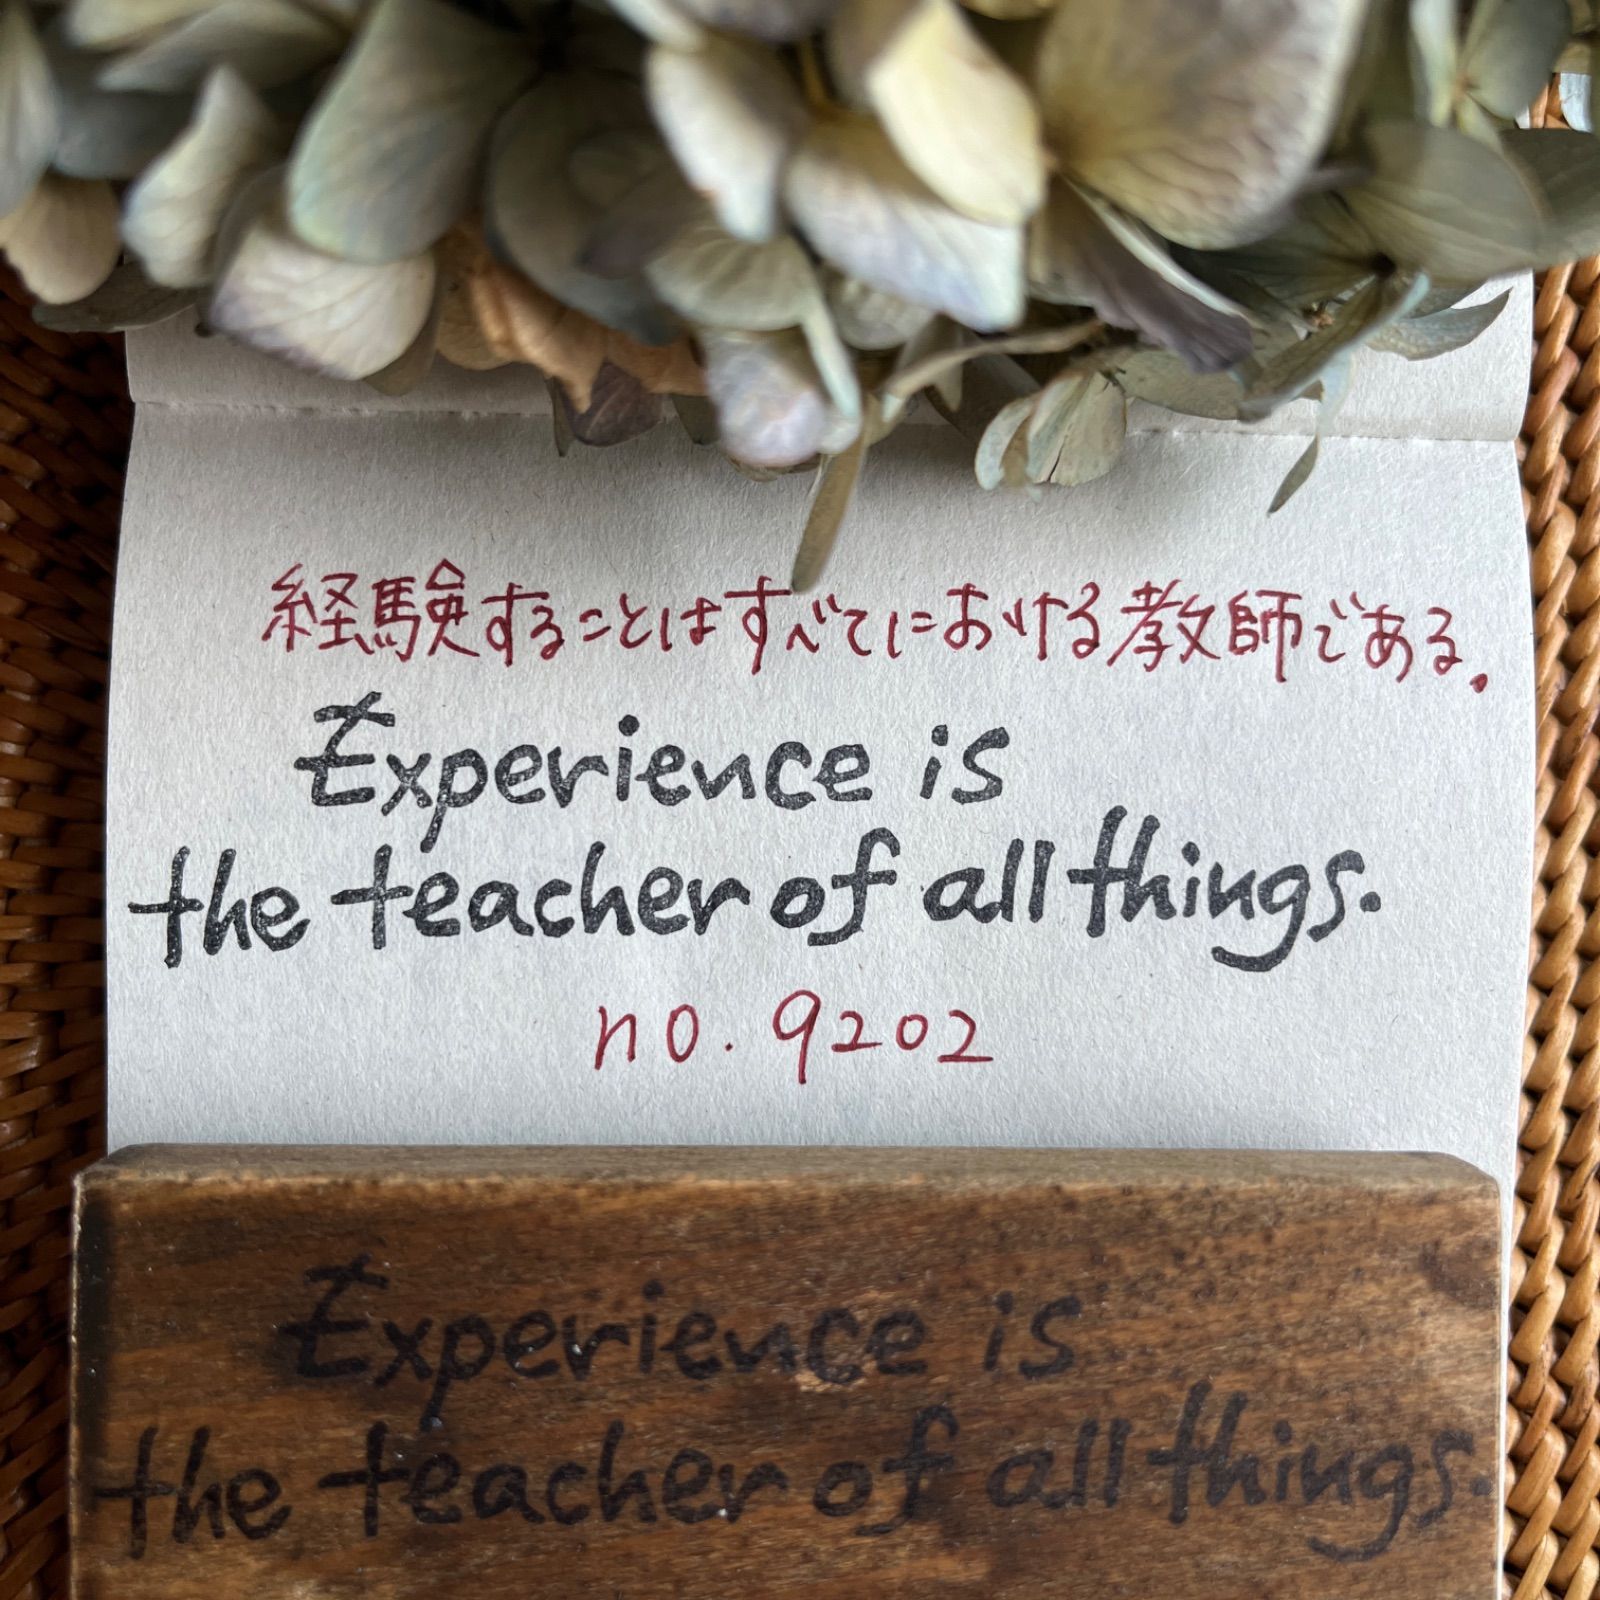 経験することはすべてにおける教師である.
Experience is
the teacher of all things.
no. 9202
Experience is
the teacher of all things.